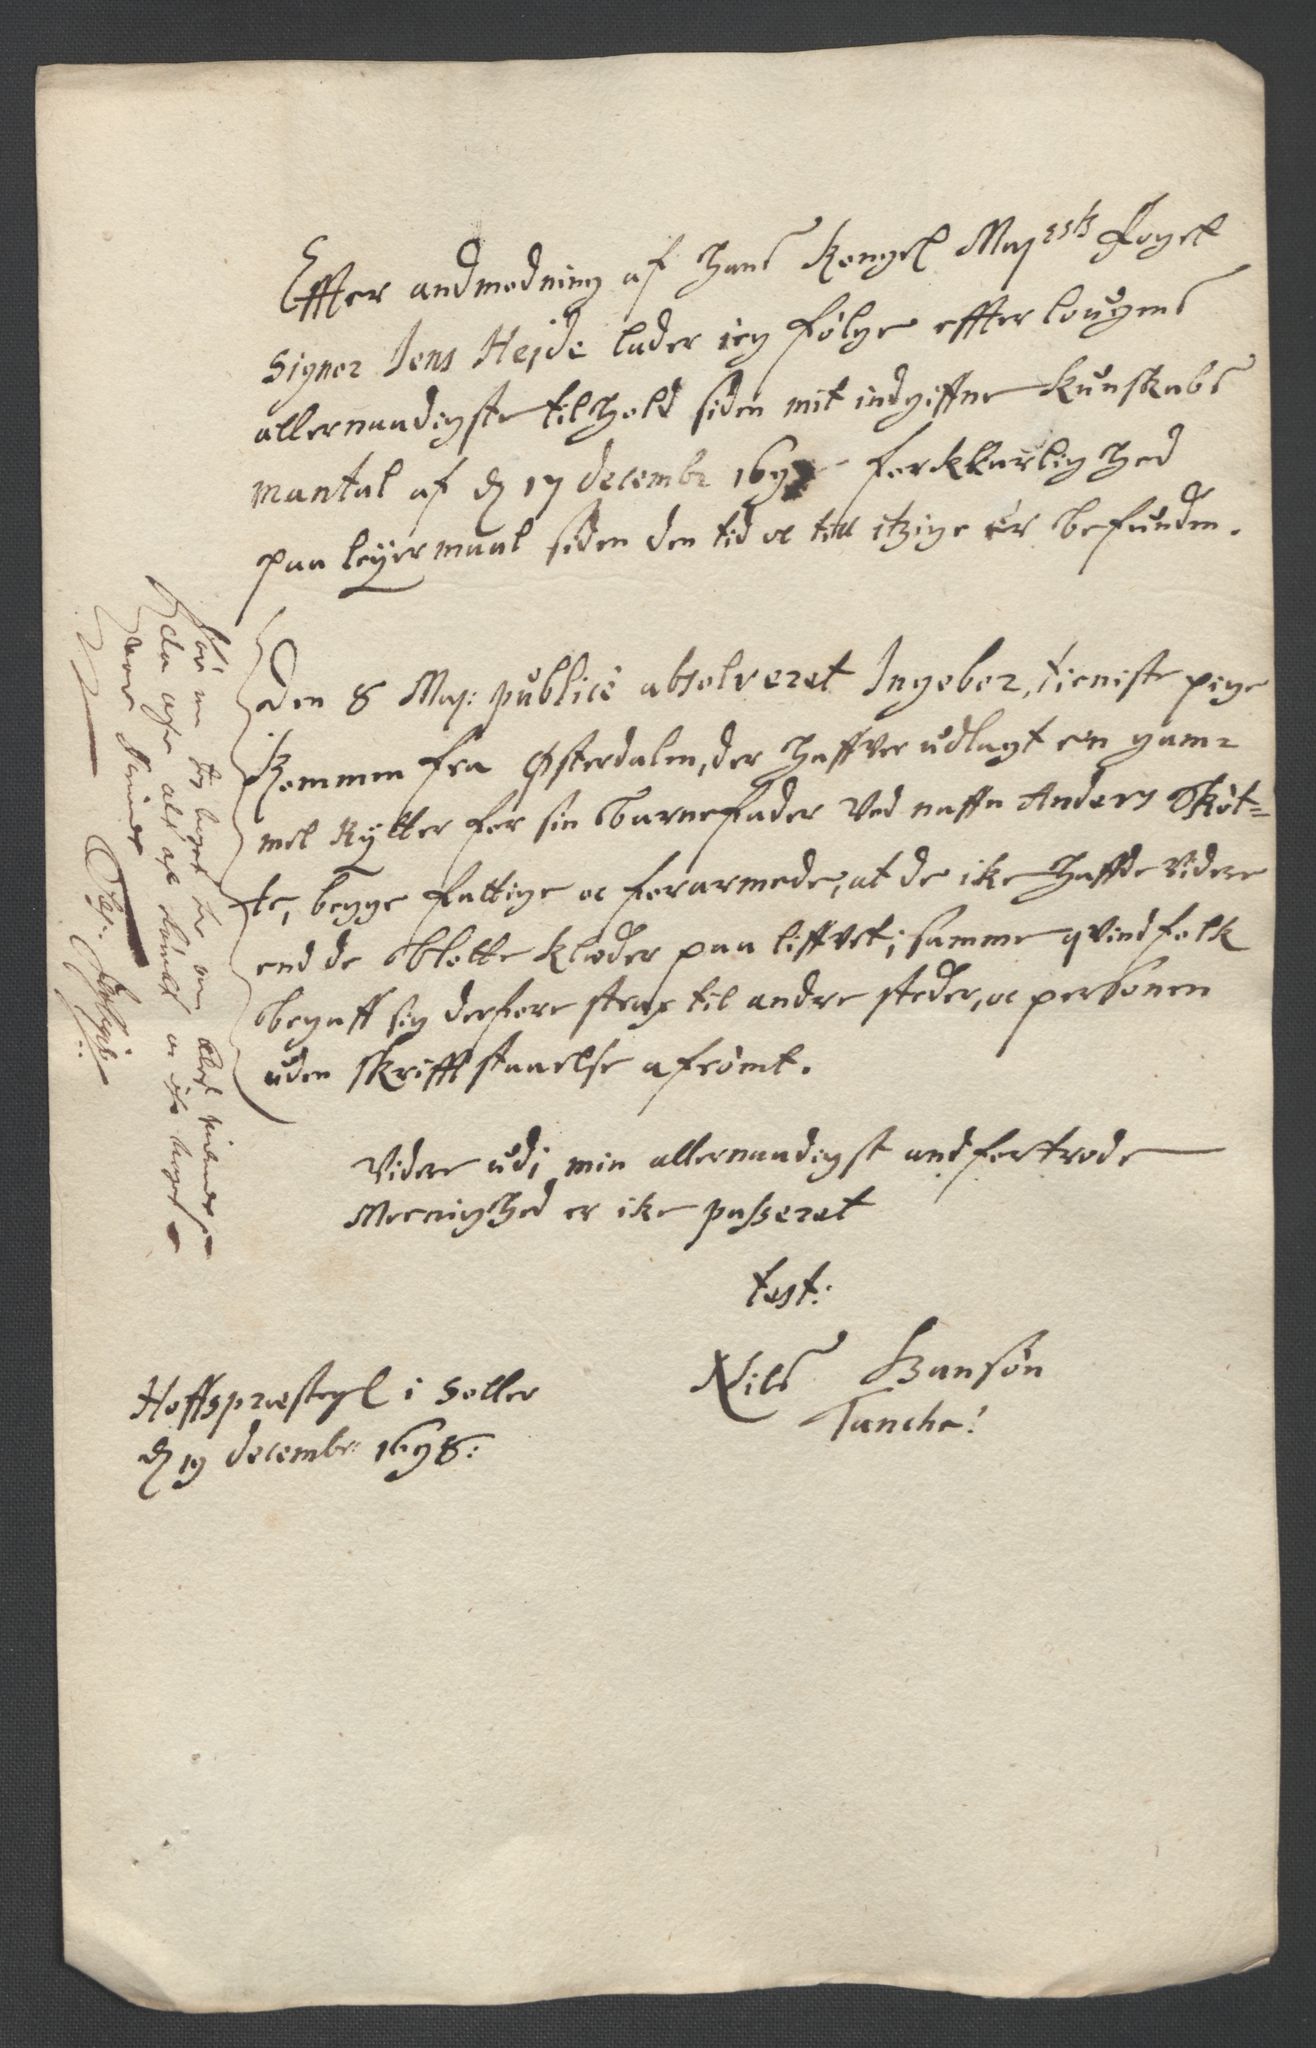 Effter andmodning af hans Kongel Maj[ests] Foget
Signor Jens Hejde lader ieg følge effter lougens
allernaadigste tilhold siden mit indgiffne kundskabs
mantal af d 17 decembr 169 forklarlighed
paa leyermaal siden den tid oc till itzige er befunden.
Den 8 Maj: publicè absolveret Ingebor, tieniste pige
kommen fra Østerdalen, der haffver udlagt en gam=
mel Rytter for sin Barnefader ved naffn Anders Skøt=
te, begge fattige oc forarmede, at de ike haffde videre
end de blotte klæder paa liffvet; samme qvindfolk
begaff sig derfore strax til andre steder, oc personen
uden skrifftstaaelse afrømt.
Videre udi min allernaadigst andfortrode
Meenighed er ike passeret
test:
Nils Hansøn
Tanche!
Hoffspræstegl i Soller
d 19 decembr: 1698: